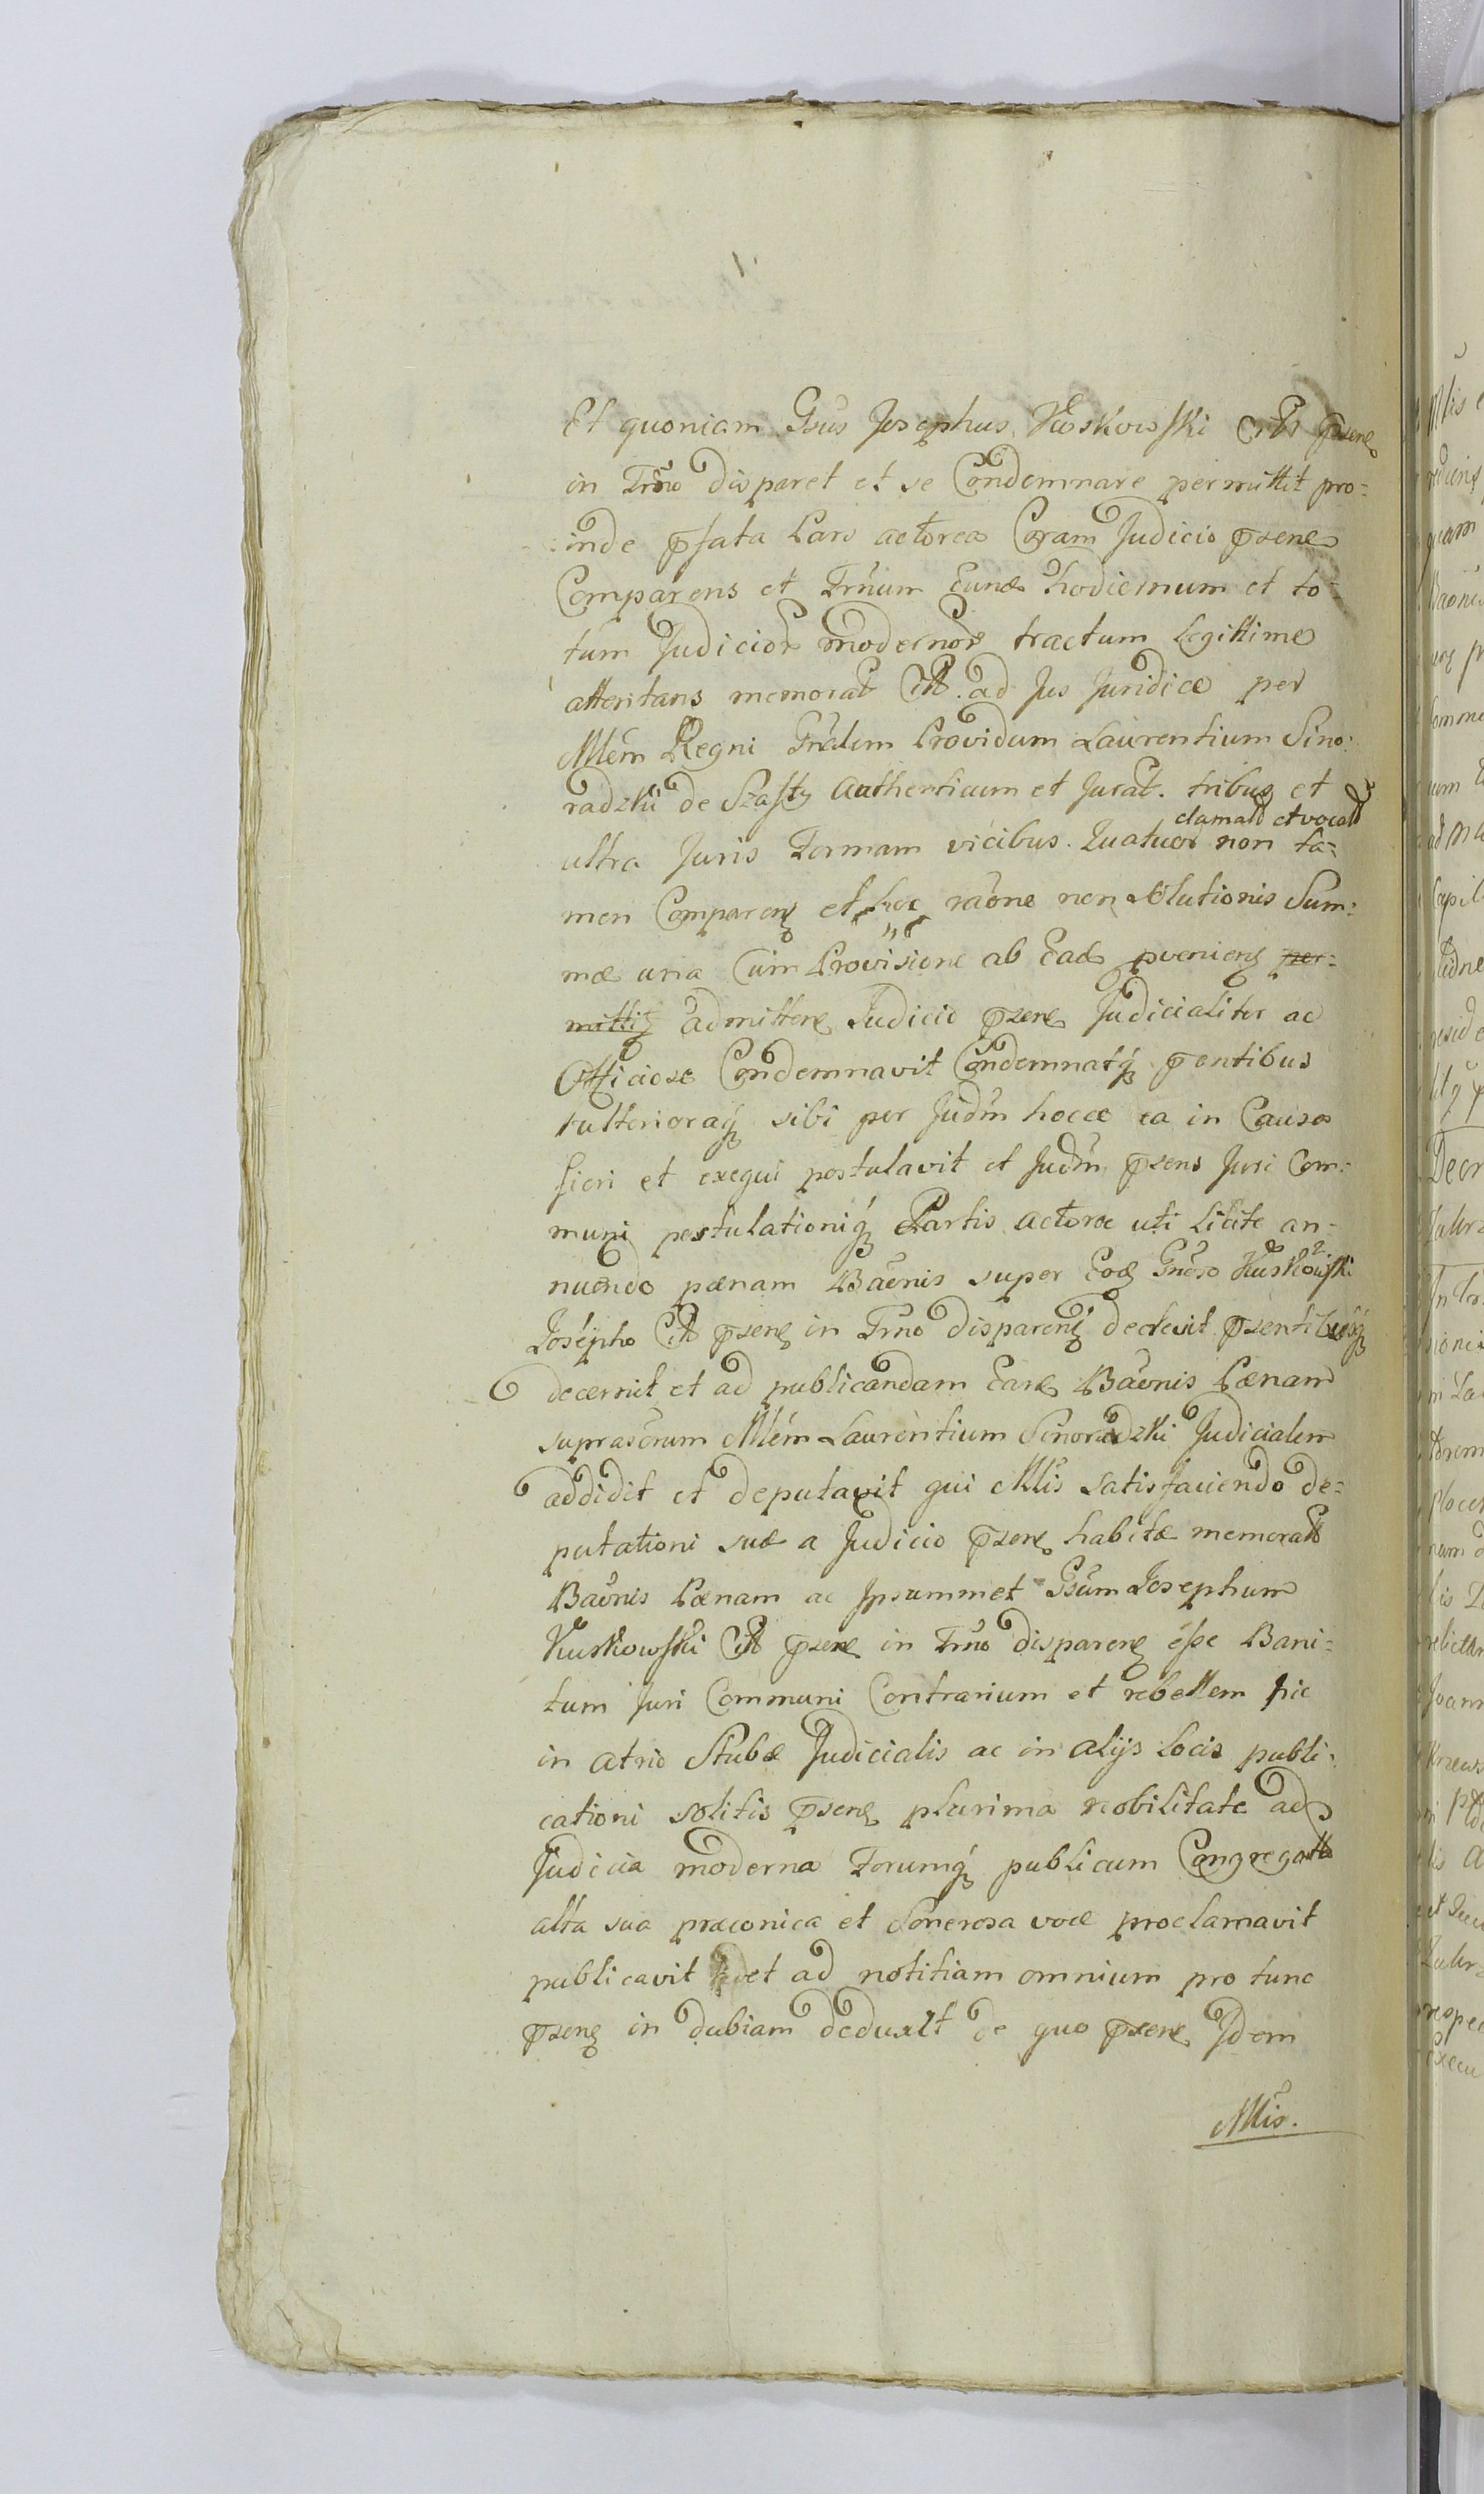 Et quoniam Gsus Josephus Kuskowski Citt psens
in Trno disparet et se Condemnare permittit pro=
inde pfata Pars actorea Coram Judicio psens
Comparens et Trnum Eund hodiernum et to=
tum Judicior modernor tractum legittime
attentans memorat Citt. ad Jus Juridice per
Mlem Regni Gnalem Providum Laurentium Sino=
radzki de Szasty Authenticum et Jurat. tribus et
clamatt et vocatt
ultra Juris Formam vicibus Quatuor non ta=
men Comparens et hoc raone non solutionis Sum=
mæ una Cum Provisione ab Ead pveniens per=
mittis admittens Judicio psens Judicialiter ac
Officiose Condemnavit Condemnatq pentibus
ulterioraq sibi per Judm hocce ea in Causa
fieri et exequi postulavit et Judm psens Juri Com=
muni postulationiq Partis actoreæ uti licite an=
nuendo pænam Baonis super Eod Gnoso Kuskowski
Josepho Citt psens in Trno disparens decrevit psentibusq
decernit et ad publicandam Eand Baonis Pænam
suprascrum Mlem Laurentium Sinoradzki Judicialem
addidit et deputavit qui Mlis satisfaciendo de=
putationi suæ a Judicio psens habitæ memoratt
Baonis Pænam ac Ipsummet Gsum Josephum
Kuskowski Citt psens in Trno disparens esse Bani=
tum Juri Communi Contrarium et rebellem hic
in atrio Stubæ Judicialis ac in alijs locis publi=
cationi solitis psens plurima nobilitate ad
Judicia moderna Forumq publicum Congregatta
alta sua præconica et Sonerosa voce proclamavit
publicavit et ad notitiam omnium pro tunc
psens in dubiam deduxit de quo psens Idem
Mlis.